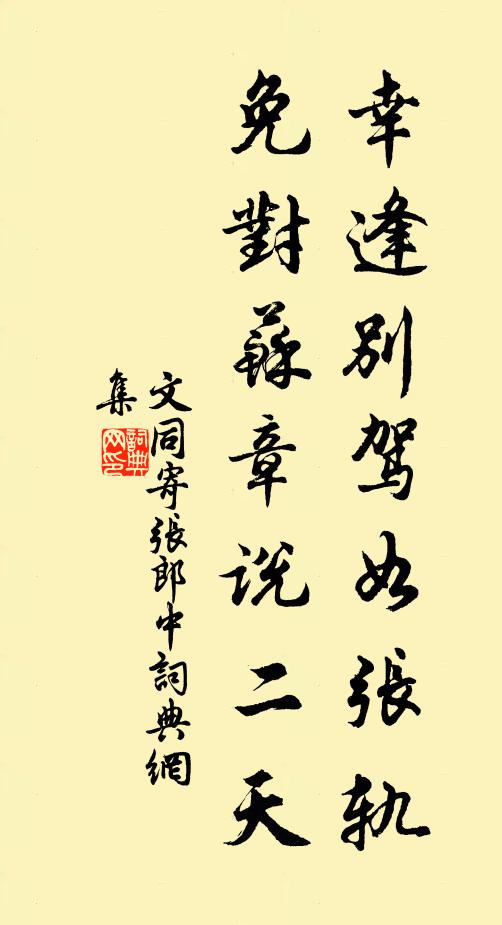 幸逢別駕如張軌
免對蘇章説二天
文同寄張郎中詞典網
集
詞典網印